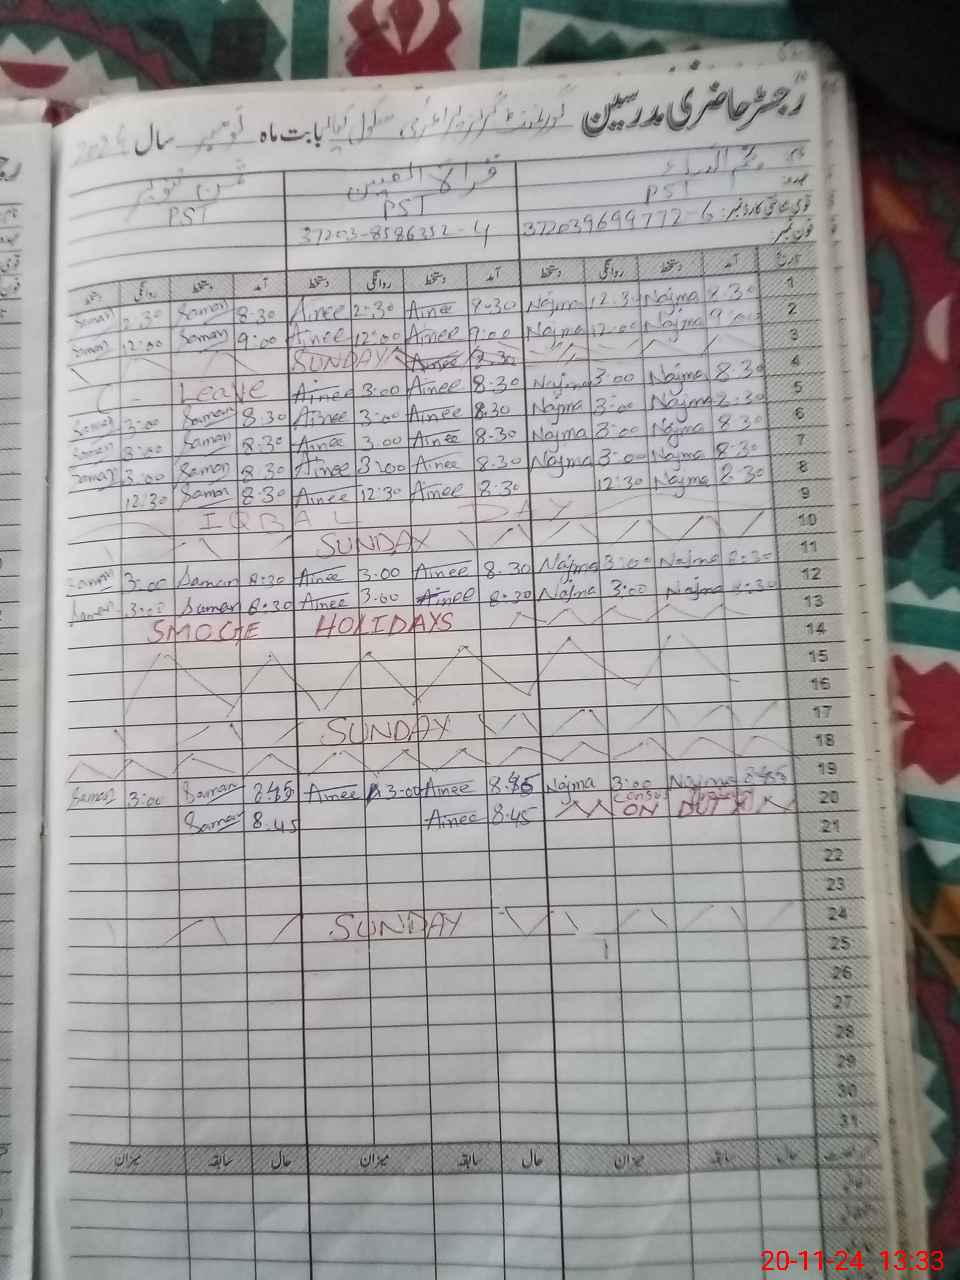 رجسٹر حاضری مدرسین گورنمنٹ گرلز پرائمری سکول بابت ماہ نومبر سال 2024
PST PST PST
قومی شناختی کارڈ نمبر: 372039699772-6 37203-8586352-4
فون نمبر:
تاریخ آمد دستخط روانگی دستخط آمد دستخط روانگی دستخط آمد دستخط روانگی دستخط
Saman 2:30 Saman 8:30 Ainee 2:30 Ainee 8:30 Najma 12:30 Najma 8:30 1
Saman 12:00 Saman 9:00 Ainee 12:00 Ainee 9:00 Najma 12:00 Najma 9:00 2
SUNDAY Ainee 8:30 3
Leave Ainee 3:00 Ainee 8:30 Najma 3:00 Najma 8:30 4
Saman 3:00 Saman 8:30 Ainee 3:00 Ainee 8:30 Najma 3:00 Najma 8:30 5
Saman 3:00 Saman 8:30 Ainee 3:00 Ainee 8:30 Najma 3:00 Najma 8:30 6
Saman 3:00 Saman 8:30 Ainee 3:00 Ainee 8:30 Najma 3:00 Najma 8:30 7
12:30 Saman 8:30 Ainee 12:30 Ainee 8:30 12:30 Najma 8:30 8
IQBAL DAY 9
SUNDAY 10
Saman 3:00 Saman 8:30 Ainee 3:00 Ainee 8:30 Najma 3:00 Najma 8:30 11
Saman 3:00 Saman 8:30 Ainee 3:00 Ainee 8:30 Najma 3:00 Najma 8:30 12
SMOGE HOLIDAYS 13
14
15
16
SUNDAY 17
18
Saman 3:00 Saman 8:45 Ainee 3:00 Ainee 8:45 Najma 3:00 Najma 8:45 19
Saman 8:45 Ainee 8:45 ON DUTY 20
21
22
23
SUNDAY 24
25
26
27
28
29
30
31
حال سابقہ میزان حال سابقہ میزان حال سابقہ میزان
20-11-24 13:33